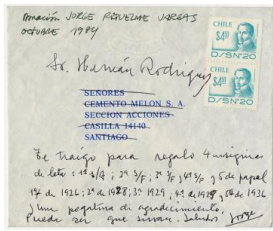 Donación JORGE RIQUELME VARGAS
OCTUBRE 1984
CHILE
$4.50
D/S Nº20
CHILE
$4.50
D/S Nº20
Sr. Hernán Rodríguez
SEÑORES
CEMENTO MELON S. A.
SECCION ACCIONES
CASILLA 14140
SANTIAGO
Te traigo para regalo 4 insignias
de leto: 1º S/G; 2º S/F; 3º S/F; 4º S/F y 5 de papal
1º de 1936; 2º de 1928; 3º 1929, 4º de 1928 y 5º de 1936
y una pegatina de agradecimiento.
Puede ser que sirvan. Saludos Jorge